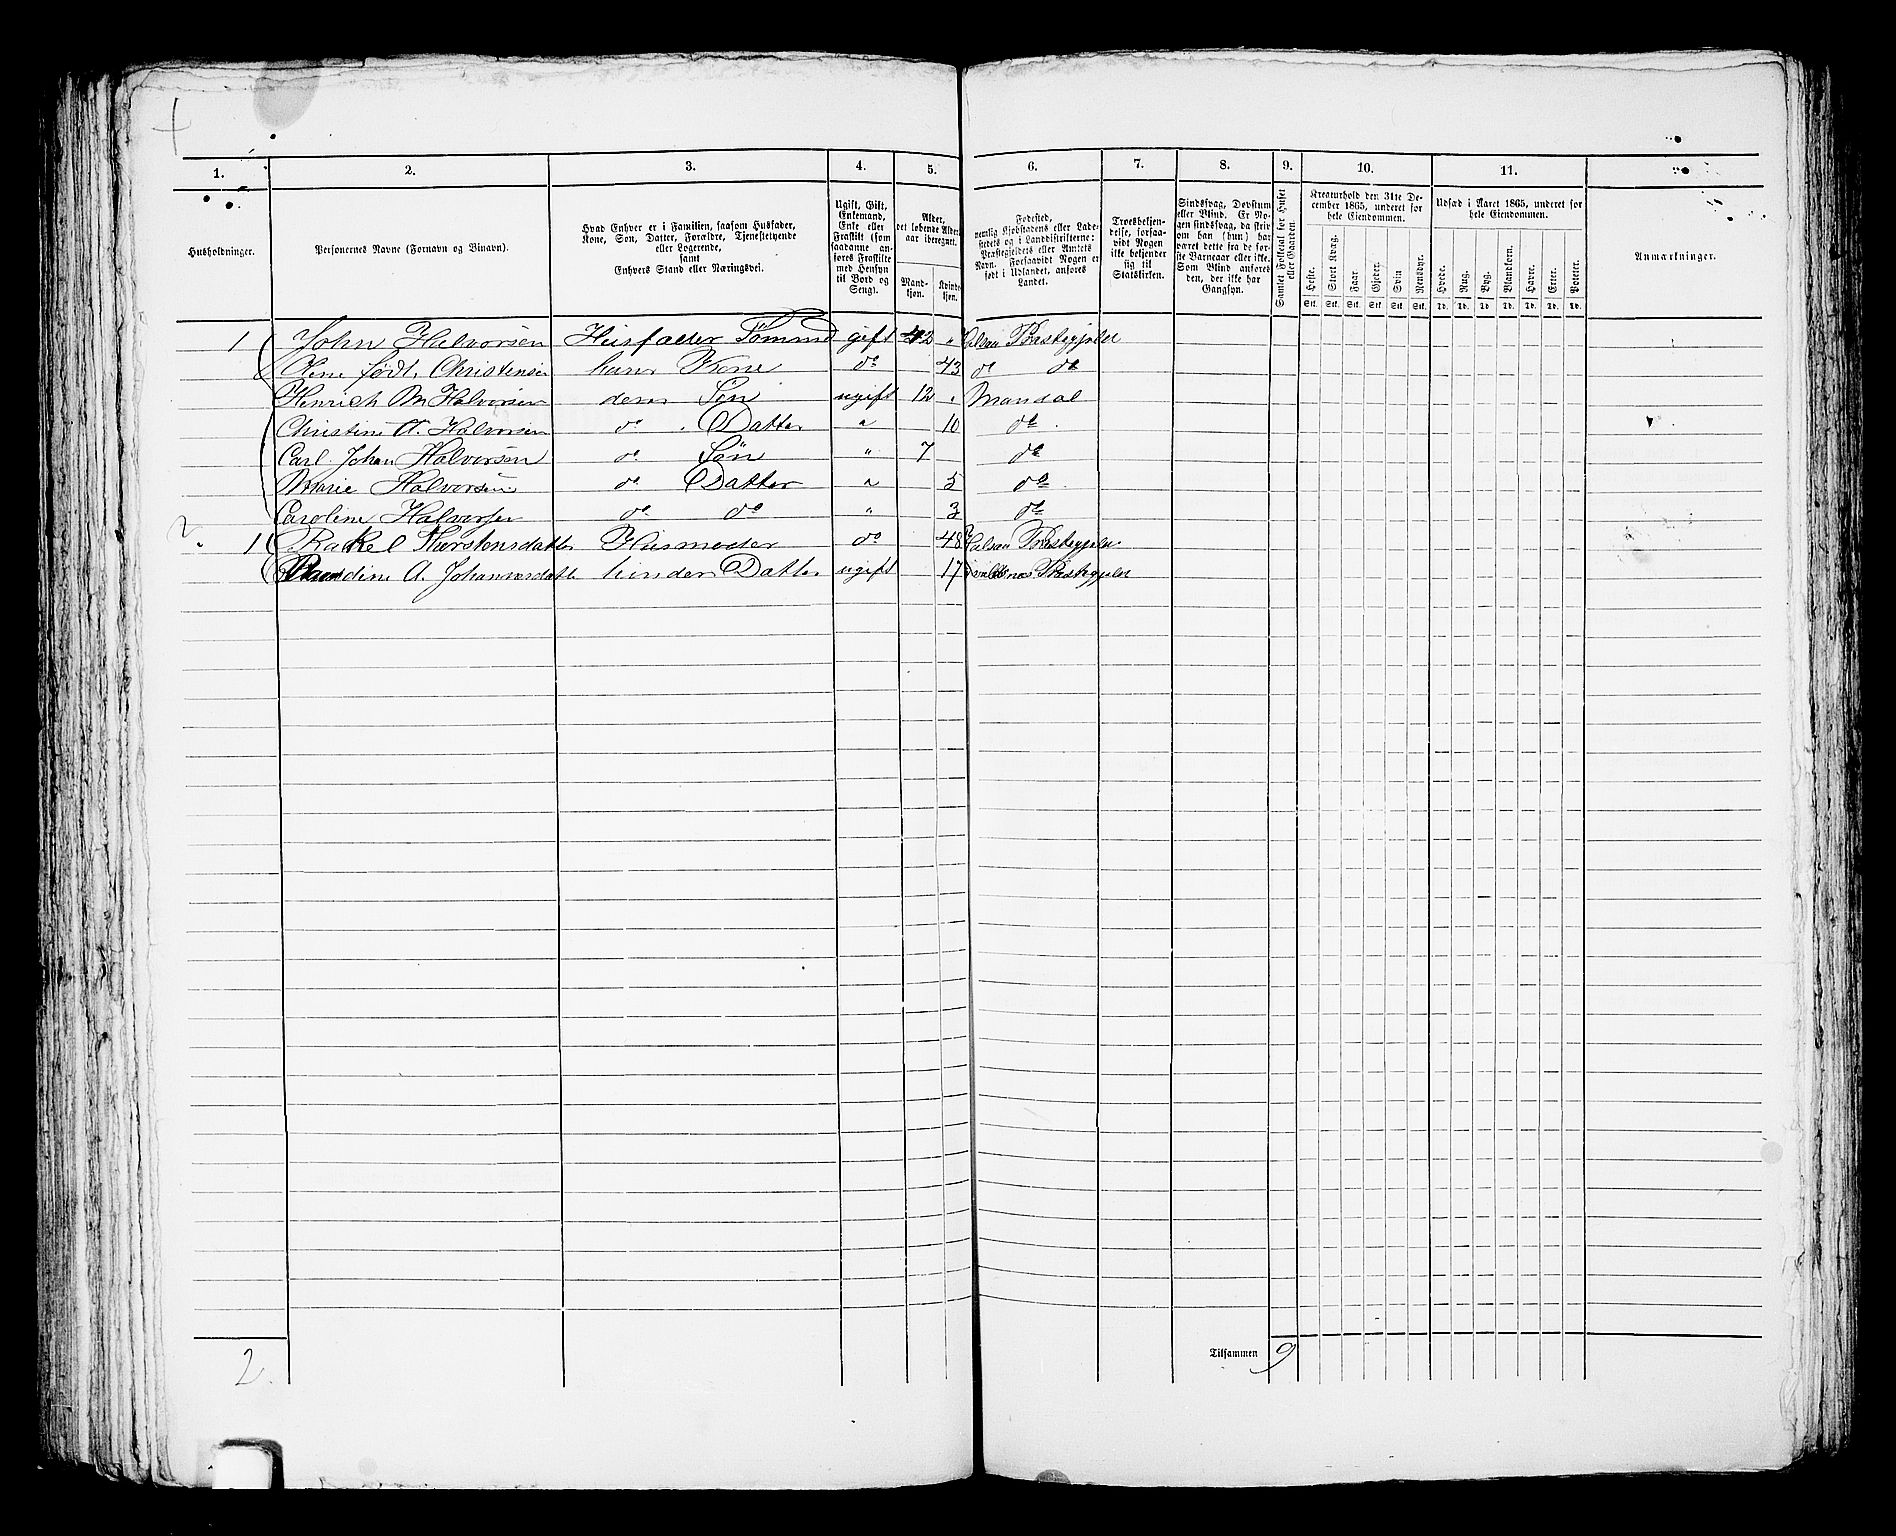 1. 2. 3. 4. 5. 6. 7. 8. 9. 10. 11.
Husholdninger.
Personernes Navne (Fornavn og Binavn).
Hvad Enhver er i Familien, saasom Husfader,
Kone, Søn, Datter, Forældre, Tjenestetyende
eller Logerende,
samt
Enhvers Stand eller Næringsvei.
Ugift, Gift,
Enkemand,
Enke eller
Fraskilt (som
saadanne an-
føres Fraskilte
med Hensyn
til Bord og
Seng).
Alder,
det løbende Alders-
aar iberegnet.
Mand-
kjøn.
Kvinde-
kjøn.
Fødested,
nemlig Kjøbstadens eller Lade-
stedets og i Landdistrikterne:
Præstegjeldets eller Amtets
Navn. Forsaavidt Nogen er
født i Udlandet, anføres
Landet.
Troesbekjen-
delse, forsaa-
vidt Nogen
ikke bekjender
sig til
Statskirken.
Sindssvag, Døvstum
eller Blind. Er No-
gen sindssvag, da skriv
om han (hun) har
været dette fra de før-
ste Barneaar eller ikke.
Som Blind anføres
den, der ikke har
Gangsyn.
Samlet Folketal for Huset
eller Gaarden
Kreaturhold den 31te De-
cember 1865, underet for
hele Eiendommen.
Heste. Stort Kvæg. Faar. Gjeder. Svin. Rensdyr.
Stk. Stk. Stk. Stk. Stk. Stk.
Udsæd i Aaret 1865, underet for
hele Eiendommen.
Hvede. Rug. Byg. Blandkorn. Havre. Erter. Poteter.
Td. Td. Td. Td. Td. Td. Td.
Anmærkninger.
1 John Halvorsen Husfader Tømmd gift 42 " Halsaa Præstegjeld
Olene født Christensen hans Kone do 43 do do
Henrich M Halvorsen deres Søn ugift 12 " Mandal
Christine A. Halvorsen do Datter " 10 do
Carl Johan Halvorsen do Søn " 7 do
Marie Halvorsen do Datter " 5 do
Caroline Halvorsen do do " 3 do
1 Rakel Thorstensdatter Husmoder do 48 Halsaa Præstegjeld
A. hindes Datter ugift 17 Præstegjeld
Tilsammen 9
2.